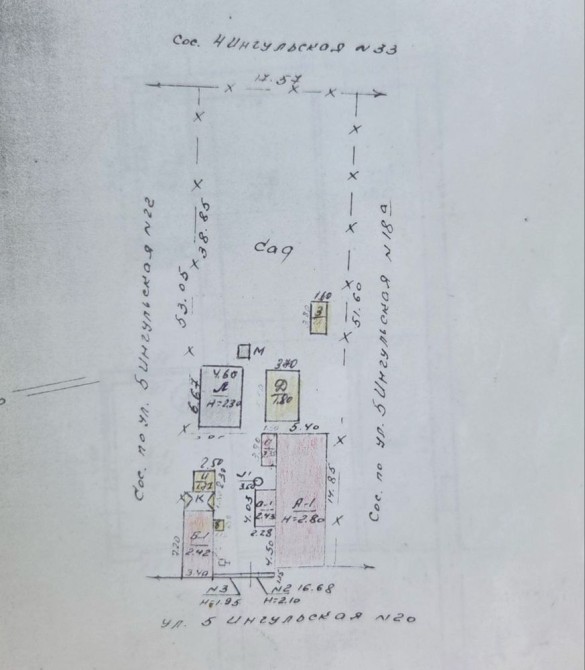 Сос. 4 Ингульская №33
17.57
38.85
53.05
Сос. по ул. 5 Ингульская №22
Сад
51.60
Сос. по ул. 5 Ингульская №18а
1.80
М
4.60
Л
Н=2.30
6.67
3.20
Д
1.80
5.40
14.85
А-1
Н=2.80
2.50
К
4.05
а-1
2.43
2.28
4.50
Б-1
2.42
7.20
3.40
№3
Н=1.95
№2
Н=2.10
16.68
ул. 5 Ингульская №20